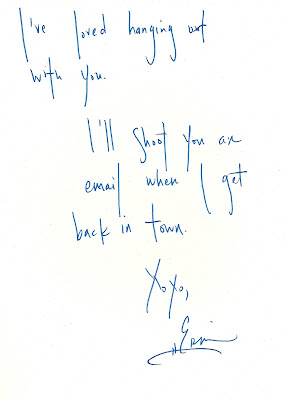 I've loved hanging out
with you.
I'll shoot you an
email when I get
back in town.
XoXo,